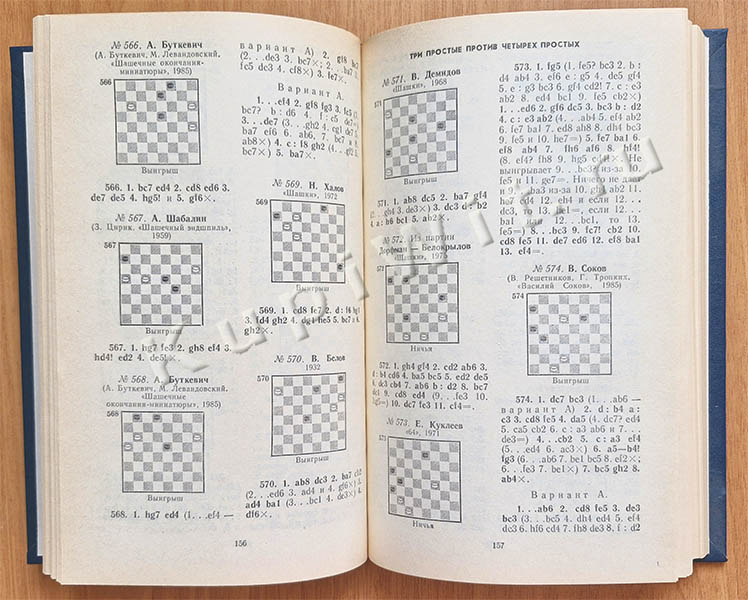 № 566. А. Буткевич
(А. Буткевич, М. Левандовский,
«Шашечные окончания-
миниатюры», 1985)
566
Выигрыш
566. 1. bc7 ed4 2. cd8 ed6 3.
de7 de5 4. hg5! и 5. gf6×.
№ 567. А. Шабалин
(З. Цирик. «Шашечный эндшпиль»,
1959)
567
Выигрыш
567. 1. hg7 fe3 2. gh8 ef4 3.
hd4! ed2 4. de5! ×.
№ 568. А. Буткевич
(А. Буткевич, М. Левандовский,
«Шашечные
окончания-миниатюры», 1985)
568
Выигрыш
568. 1. hg7 ed4 (1. . .ef4 —
вариант А) 2. gf8 bc3
(2. . .de3 3. bc7×; 2. . .ba7
fe5 dc3 4. cf8×) 3. fe7×.
Вариант А.
1. . .ef4 2. gf8 fg3 3. fc5
bc7? b : d6 4. f : c5 de7=)
3. . .de7 (3. . .gh2 4. cg1 de7 5.
ba7 ef6 6. ab6, 7. bc7 и 8.
ab8×) 4. c : f8 gh2 5.
bc7×) 5. ba7×.
№ 569. Н. Халов
(«Шашки», 1972
569
Выигрыш
569. 1. ed8 fe7 2. d : f6 hg1
3. fd4 gh2 4. dg1 fe5 5. bc7 и 6.
gh2×.
№ 570. В. Белов
1932
570
Выигрыш
570. 1. ab8 dc3 2. ba7 cb2
(2. . .ed6 3. ad4 и 4. gf6×) 3.
ad4 ba1 (3. . .bc1 4. de3×) 4.
df6×.
156
ТРИ ПРОСТЫЕ ПРОТИВ ЧЕТЫРЕХ ПРОСТЫХ
№ 571. В. Демидов
«Шашки», 1968
571
Выигрыш
571. 1. ab8 dc5 2. ba7 gf4
(2. . .gh4 3. de3×) 3. dc3 d : b2
4. a : h6 bc1 5. ab2×.
№ 572. Из партии
Дорфман — Белокрылов
«Шашки», 1975
Ничья
572. 1. gh4 gf4 2. cd2 ab6 3.
d : b4 cd6 4. ba5 bc5 5. ed2 de5
6. dc3 cb4 7. ab6 b : d2 8. bc7
ed1 9. cd8 ed4 (9. . .fe3 10.
fc5×) 10. dc7 fe3 11. cf4=.
№ 573. Е. Куклеев
«64», 1971
573
Ничья
573. 1. fg5 (1. fe5? bc3 2. b :
d4 ab4 3. ef6 e : g5 4. de5 gf4
5. e : g3 bc3 6. gf4 cd2! 7. c : e3
ab2 8. ed4 bc1 9. fe5 cb2×)
1. . .ef6 2. gf6 dc5 3. bc3 b : d2
4. c : e3 ab2 (4. . .ab4 5. ef4 ab2
6. fe7 ba1 7. ed8 ah8 8. dh4 bc3
9. fe5 и 10. he7=) 5. fe7 ba1 6.
ef8 ab4 7. fh6 af6 8. hf4!
(8. ef4? fh8 9. hg5 ed4×). Не
выигрывает 9. . .bc3 из-за 10.
fe5 и 11. ge7=). Ничего не дает
и 9. . .ba3 из-за 10. gh2 ab2 11.
he7 gd4 12. eh6 и если 12. . .
dc3, то 13. fe1=, если 12. . .
ba1, или 13.
fe5=. 8. . .bc3 9. fc7! cb2 10.
cd8 fe5 11. de7 ed6 12. ef8 ba1
13. ef4=.
№ 574. В. Соков
(В. Решетников, Г. Тропких,
«Василий Соков», 1985)
574
Выигрыш
574. 1. dc7 bc3 (1. . .ab6 —
вариант А) 2. d : b4 a :
c3 3. cd8 fe5 4. da5 (4. dc7? ed4
5. ca5 cb2 6. c : a3 ab6 и 7. . .
de3=) 4. . .cb2 5. c : a3 ef4
(5. . .ed4 6. ac3×) 6. a5—b4!
fg3 (6. . .ab6 7. be1 bc5 8. ef2×;
6. . .fe3 7. be1×) 7. bc5 gh2 8.
ab4×.
Вариант А.
1. . .ab6 2. cd8 fe5 3. de3
bc3 (3. . .bc5 4. dh4 ed4 5. ef4
dc3 6. hf6 cd4 7. fh8 de3 8. f : d2
157
KupiWit.ru